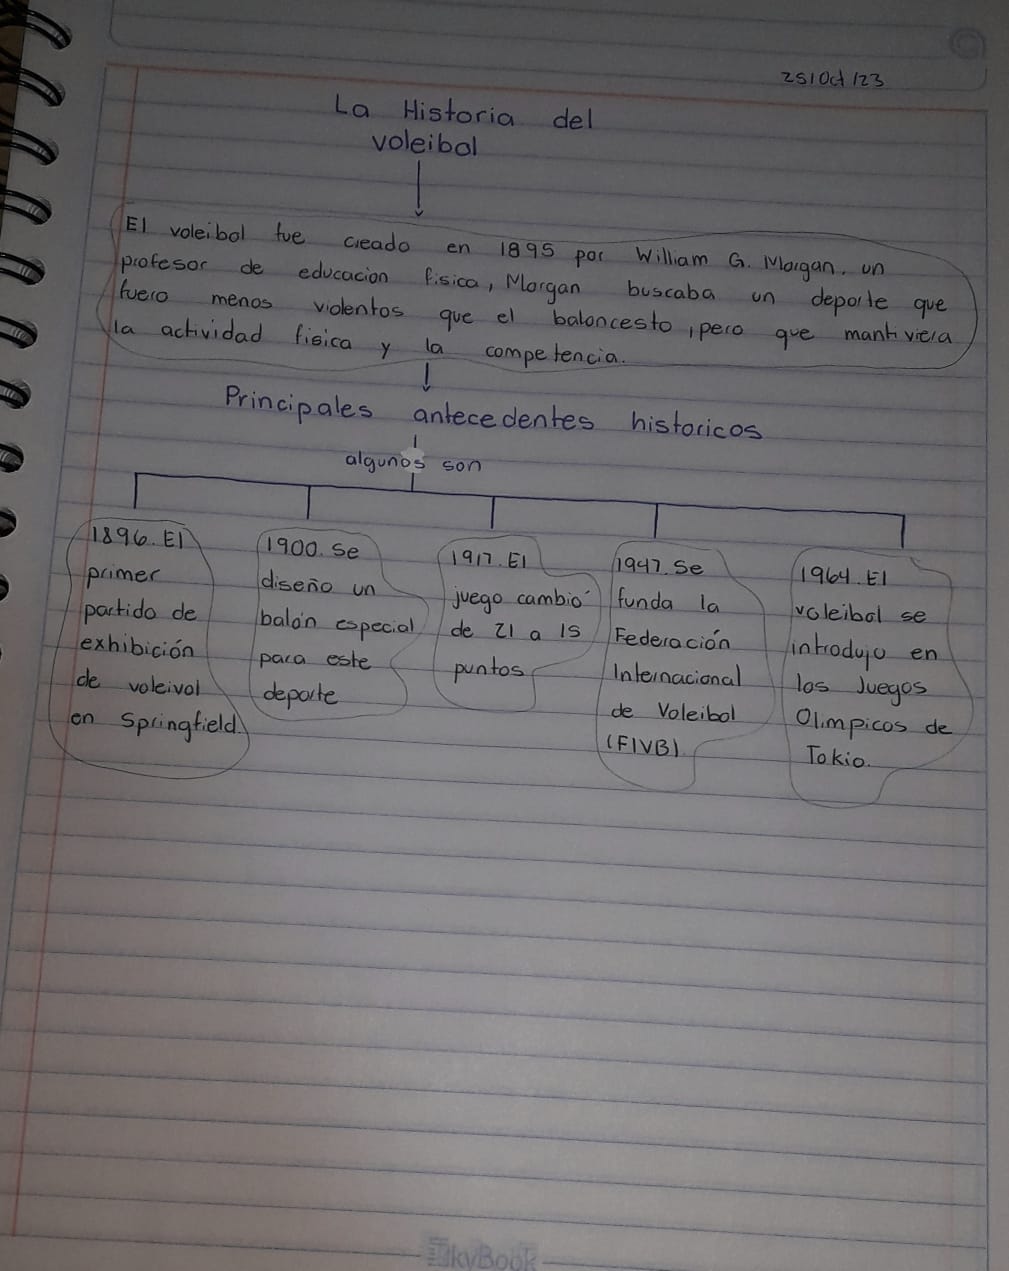 25/Oct/23
La Historia del
voleibol
El voleibol fue creado en 1895 por William G. Morgan, un
profesor de educacion fisica, Morgan buscaba un deporte que
fuero menos violentos que el baloncesto, pero que mantiviera
la actividad fisica y la competencia.
Principales antecedentes historicos
algunos son
1896. El
primer
partido de
exhibición
de voleivol
en Springfield.
1900. Se
diseño un
balón especial
para este
deporte
1917. El
juego cambió
de 21 a 15
puntos
1947. Se
funda la
Federación
Internacional
de Voleibol
(FIVB)
1964. El
voleibol se
introdujo en
los Juegos
Olimpicos de
Tokio.